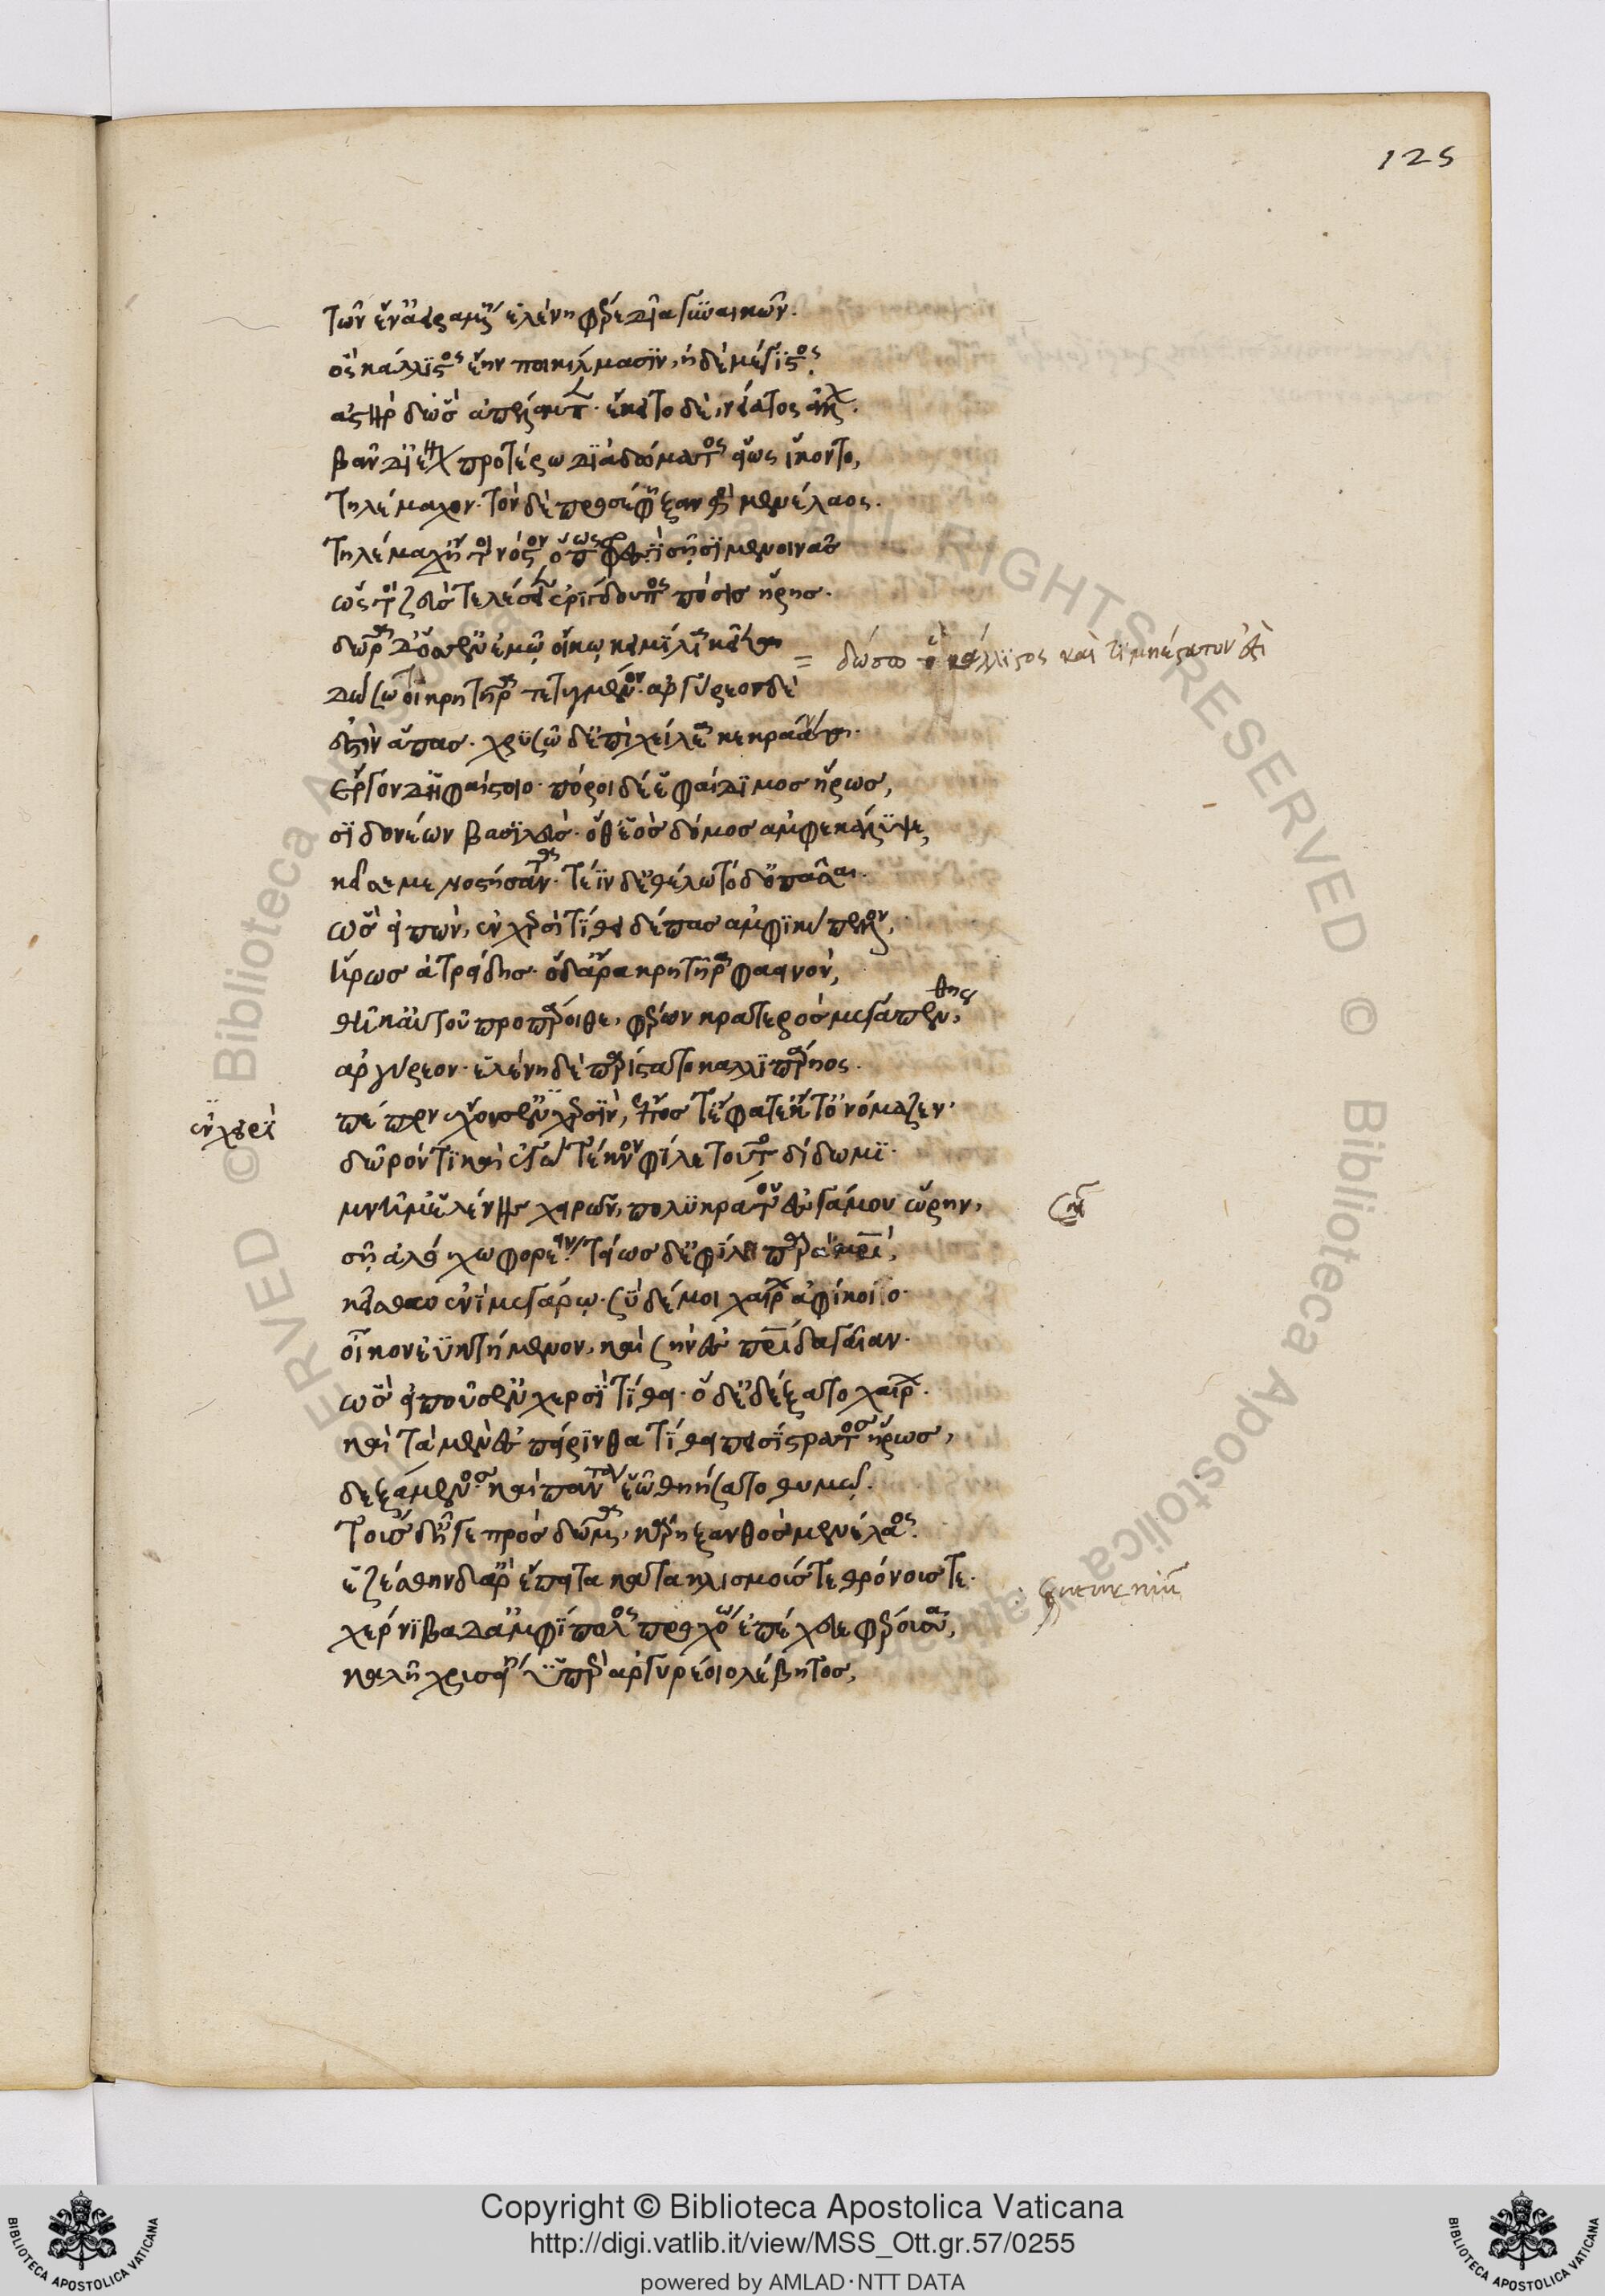 125
τῶν ἕν ἀειραμένη ἑλένη φέρε δῖα γϋναικῶν.
ὃς κάλλϊστος ἔην ποικίλμασϊν, ἠδὲ μέγϊστος.
ἀστὴρ δ' ὣς ἀπέλαμπεν. ἔκειτο δὲ νείατος ἄλλων.
βὰν δ' ϊέναι προτέρω δϊὰ δώματος εἵως ἵκοντο,
τηλέμαχον. τὸν δὲ προσέφη ξανθὸς μενέλαος.
τηλέμαχ' ἤτοι νόστον ὅπως φρεσϊ σῇσϊ μενοινᾷς
ὥς τοι ζεὺς τελέσειεν ἐρίγδουπος πόσις ἥρης.
δώρων δ' ὅσσ' ἐν ἐμῷ οἴκῳ κειμήλϊα κεῖται
= δώσω ὃ κάλλϊστος καὶ τϊμηέστατον ἐστὶ
δώσω τοι κρητῆρα τετυγμένον. ἀργύρεος δὲ
ἐστὶν ἅπας. χρϋσῶ δ' ἐπὶ χείλεα κεκράανται.
ἔργον δ' ἡφαίστοιο. πόρεν δέ ἑ φαίδϊμος ἥρως,
σϊδονίων βασϊλεύς. ὅθ' ἑὸς δόμος ἀμφεκάλϋψε
κεῖσε με νοστήσαντα. τεῒν δ' ἐθέλω τόδ' ὀπάσσαι.
ὣς εἰπὼν, ἐν χερσὶ τίθει δέπας ἀμφϊκύπελλον,
ἥρως ἀτρείδης. ὁ δ' ἄρα κρητῆρα φαεινὸν,
θῆκ' αὐτοῦ προπάροιθε, φέρων κρατερὸς μεγαπένθης,
ἀργύρεον. ἑλένη δὲ παρίστατο καλλϊπάρηος.
ἐν χερσὶ
πέπλον ἔχουσ' ἐν χερσὶν, ἔπος τ' ἔφατ' ἔκ τ' ὀνόμαζεν.
δῶρόν τϊ καὶ ἐγὼ τέκνον φίλε τοῦτο δίδωμϊ.
μνῆμ' ἑλένης χειρῶν, πολϋηράτου ἐς γάμου ὥρην,
σῇ ἀλόχῳ φορέειν. τείως δὲ φίλῃ παρὰ μητρὶ,
κεῖσθαι ἐνὶ μεγάρῳ. σϋ δέ μοι χαίρων ἀφίκοιο.
οἶκον ἐϋκτήμενον, καὶ σὴν ἐς πατρίδα γαῖαν.
ὣς εἰποῦσ' ἐν χερσὶ τίθει. ὁ δ' ἐδέξατο χαίρων.
καὶ τὰ μὲν ἐς πείρϊνθα τίθει πεισϊστρατος ἥρως,
δεξάμενος. καὶ πάντα ἑῷ θηήσατο θυμῷ.
τοὺς δ' ἦγε πρὸς δῶμα, κάρη ξανθὸς μενέλαος.
ἑζέσθην δ' ἄρ' ἔπειτα κατὰ κλισμοὺς τε θρόνους τε.
χέρνϊβα δ' ἀμφίπολος προχόω ἐπέχευε φέρουσα,
καλῇ χρυσείῃ ὑπὲρ ἀργυρέοιο λέβητος,
Copyright © Biblioteca Apostolica Vaticana
http://digi.vatlib.it/view/MSS_Ott.gr.57/0255
powered by AMLAD·NTT DATA